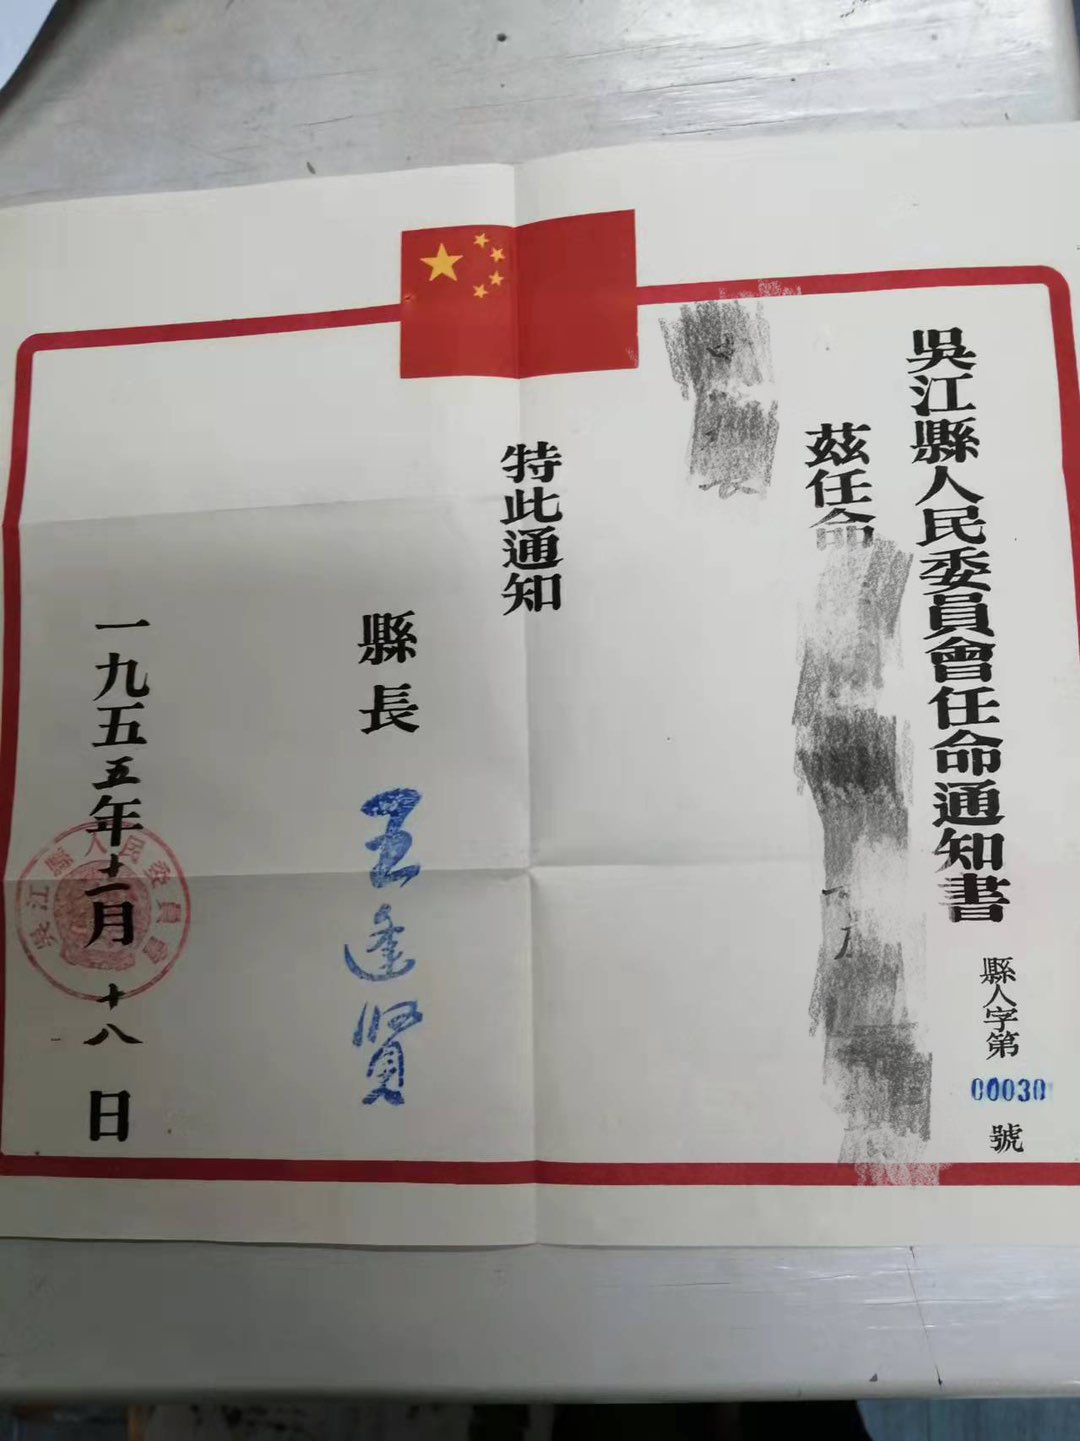 吳江縣人民委員會任命通知書
縣人字第00030號
茲任命
特此通知
縣長 王逢贤
一九五五年十一月十八日
吳江縣人民委員會